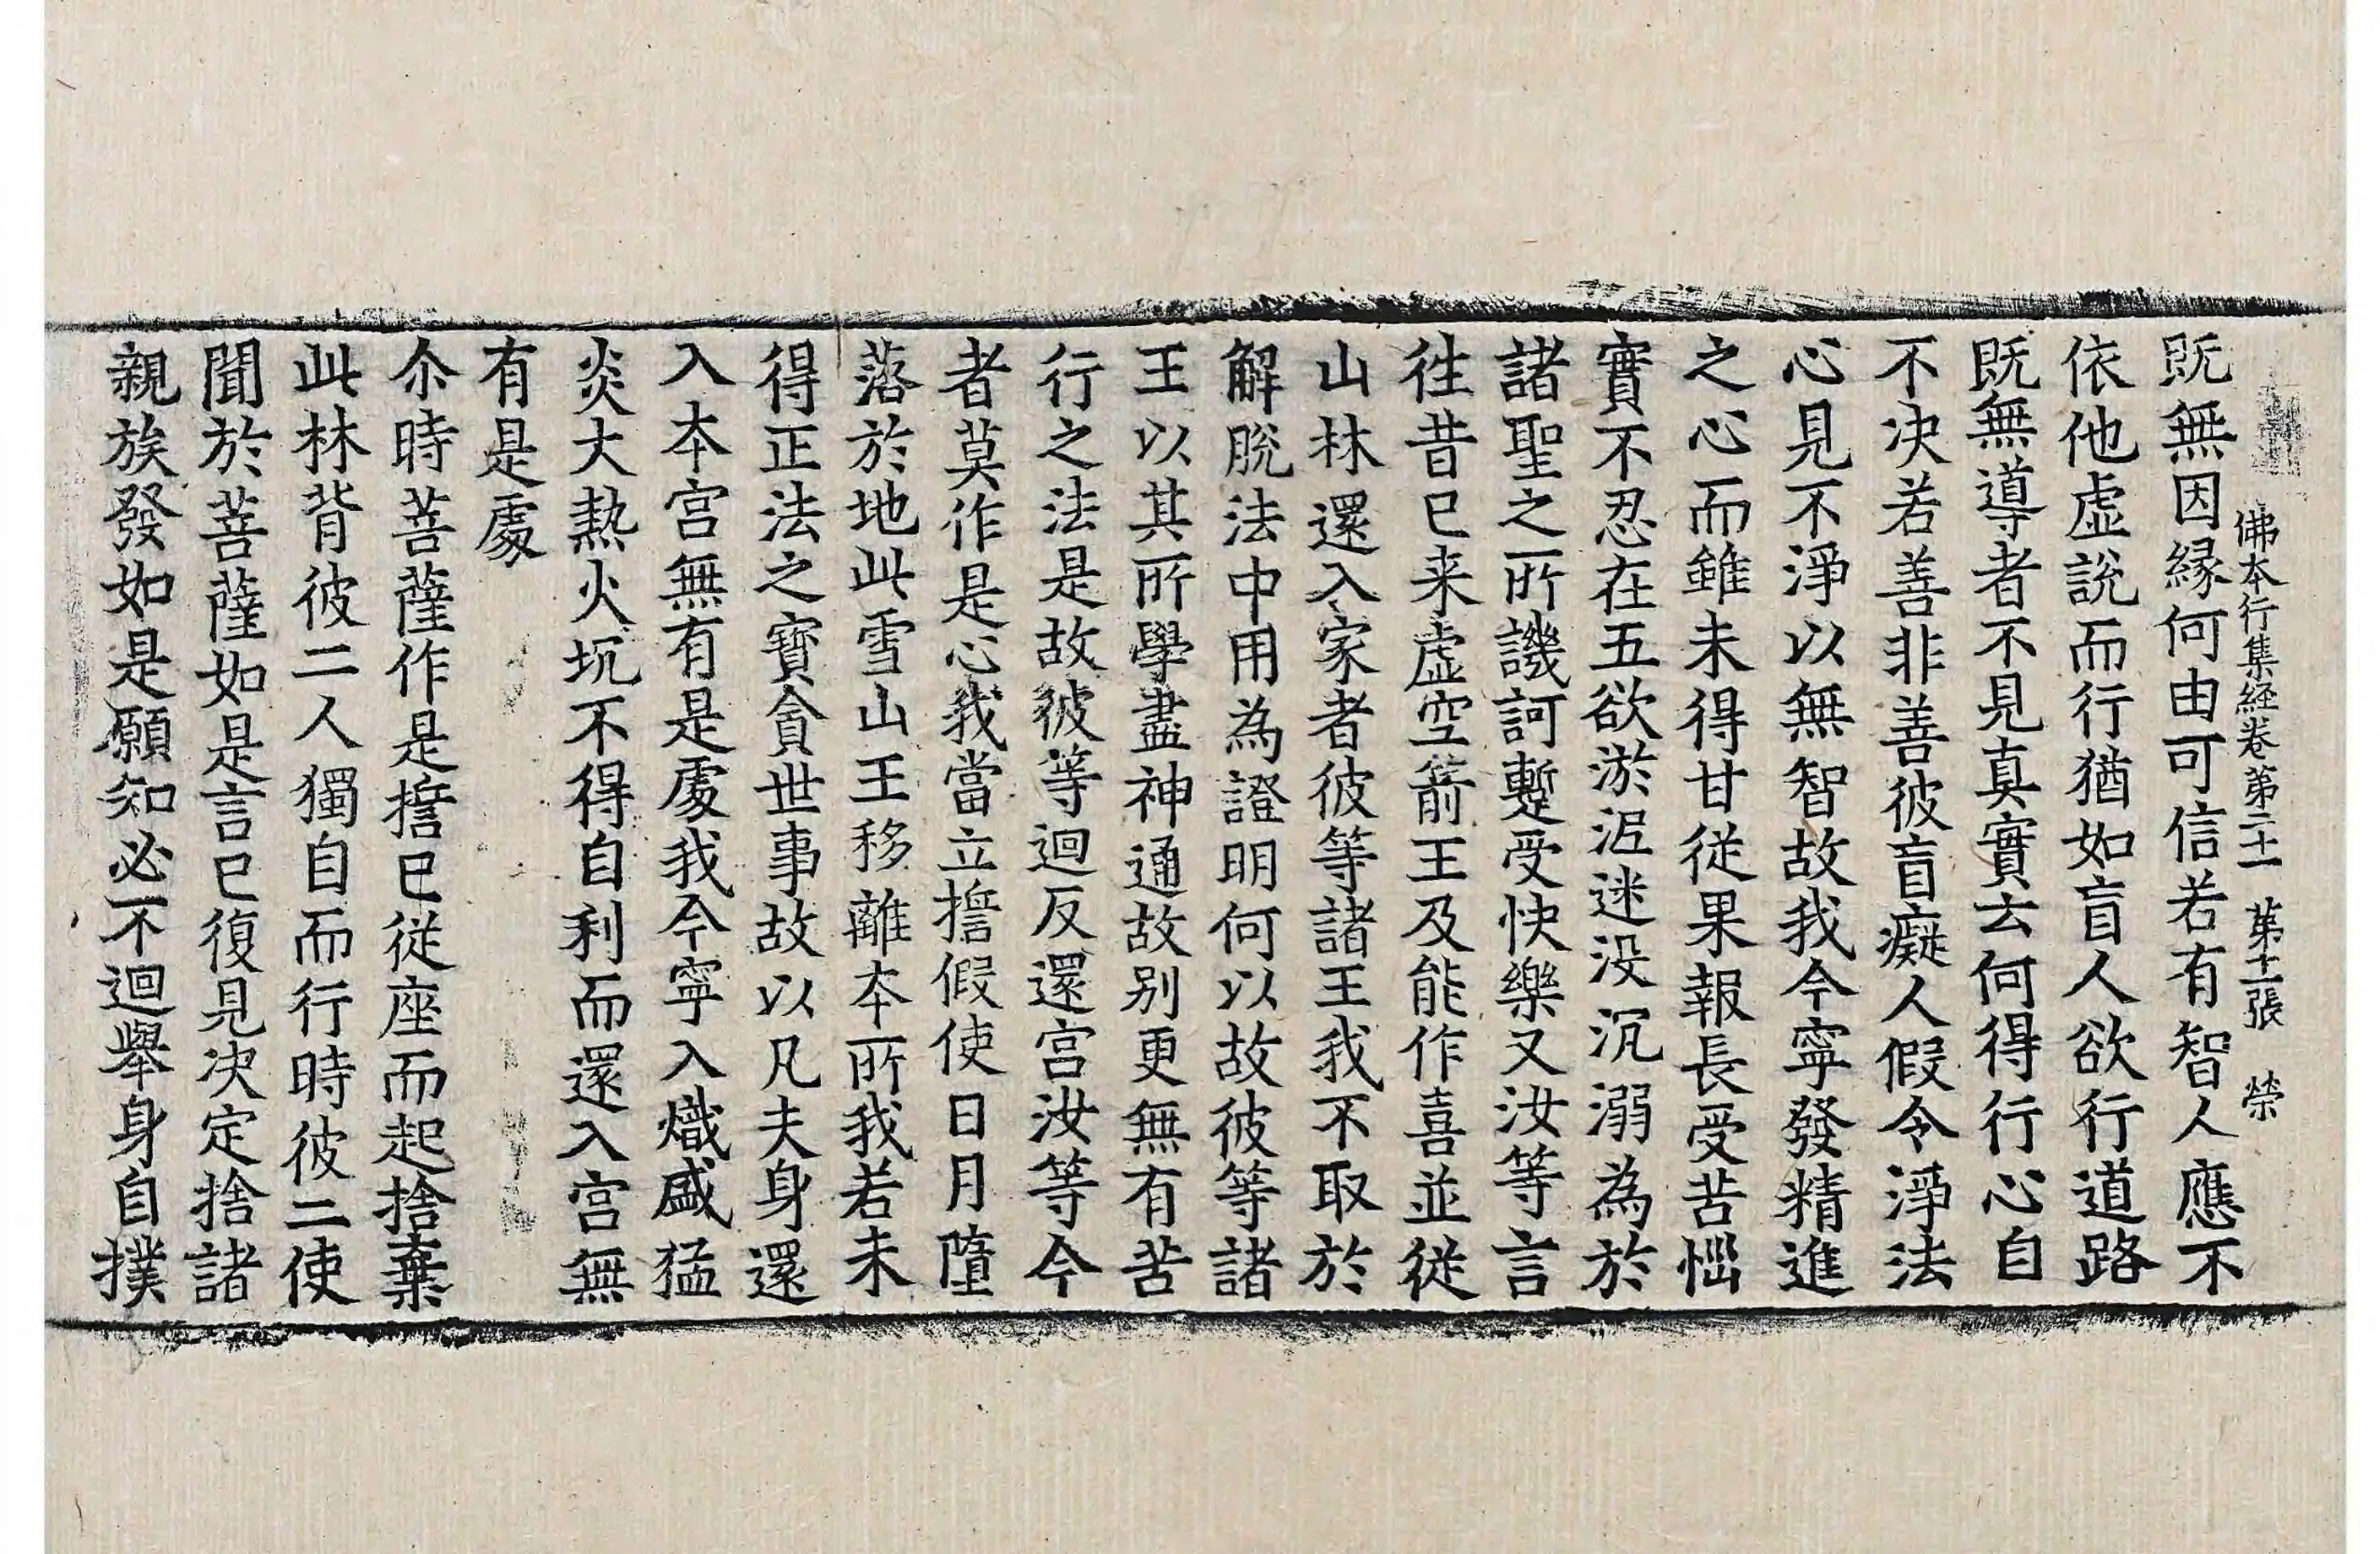 佛本行集経卷第二十一 第十二張 榮
既無因縁何由可信若有智人應不
依他虚說而行猶如盲人欲行道路
既無導者不見真實去何得行心自
不决若善非善彼盲癡人假令淨法
心見不淨以無智故我今寧發精進
之心而雖未得甘從果報長受苦惱
實不忍在五欲淤泥迷没沉溺為於
諸聖之所譏訶蹔受快樂又汝等言
徃昔已来虚空箭王及能作喜並從
山林還入家者彼等諸王我不取於
解脫法中用為證明何以故彼等諸
王以其所學盡神通故别更無有苦
行之法是故彼等迴反還宫汝等今
者莫作是心我當立誓假使日月墮
落於地此雪山王移離本所我若未
得正法之寶貪世事故以凡夫身還
入本宫無有是處我今寧入熾盛猛
炎大熱火坑不得自利而還入宫無
有是處
尒時菩薩作是誓已從座而起捨棄
此林背彼二人獨自而行時彼二使
聞於菩薩如是言已復見决定捨諸
親族發如是願知必不迴舉身自撲